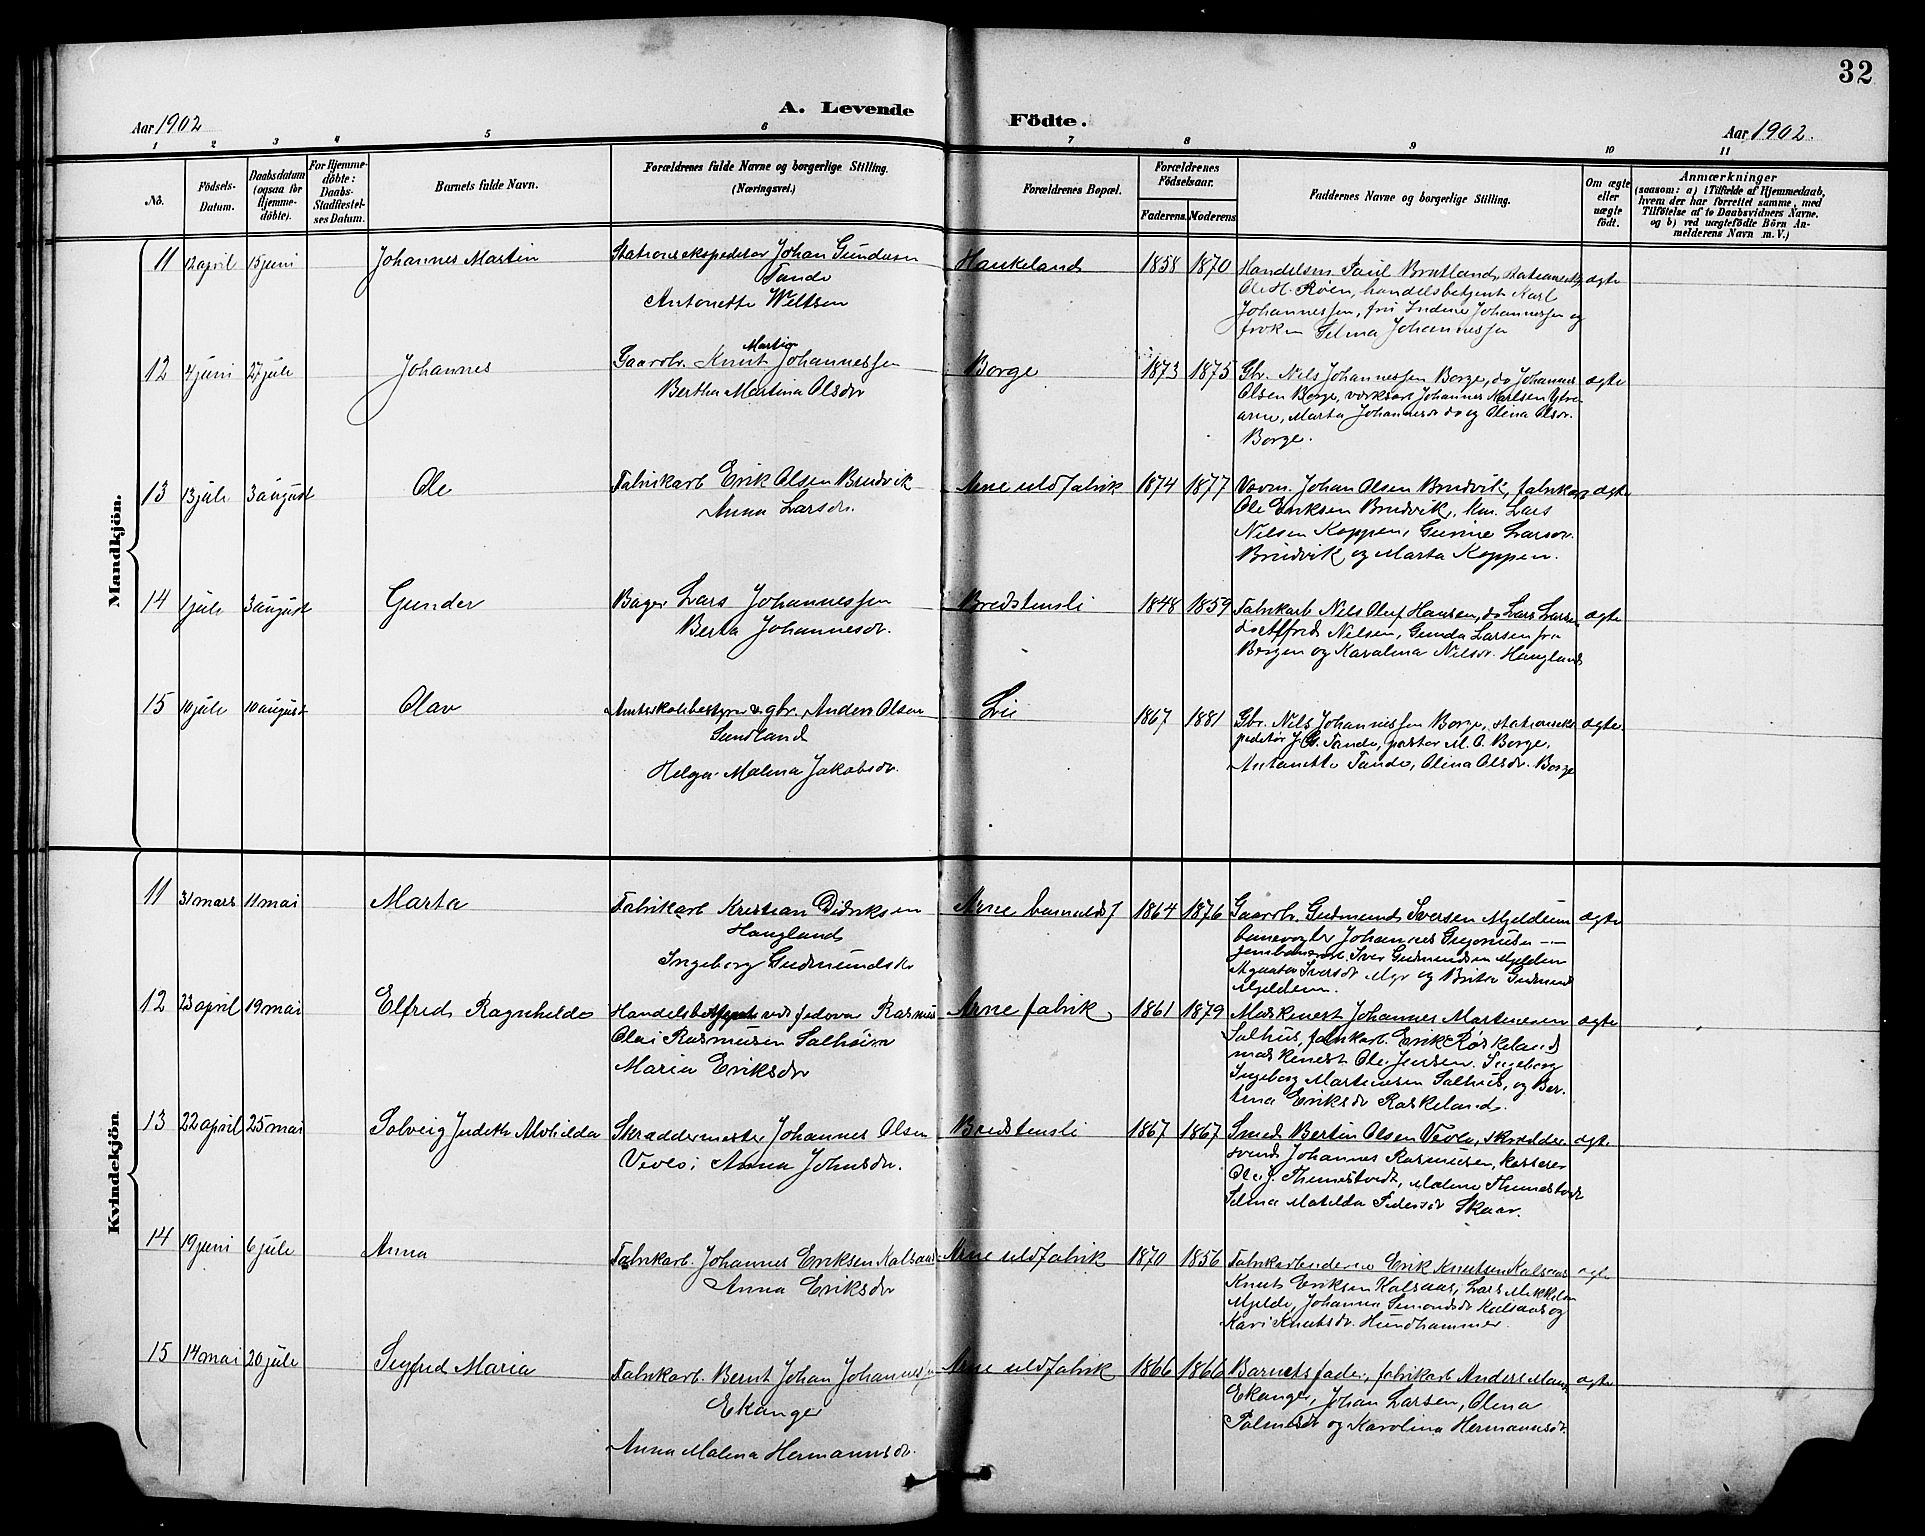 32
A. Levende
Födte.
Aar 1902
Aar 1902.
1 2 3 4 5 6 7 8 9 10 11
No.
Födsels-
Datum.
Daabsdatum
(ogsaa for
Hjemme-
döbte).
For Hjemme-
döbte:
Daabs-
Stadfæstel-
ses Datum.
Barnets fulde Navn.
Forældrenes fulde Navne og borgerlige Stilling.
(Næringsvei.)
Forældrenes Bopæl.
Forældrenes
Födselsaar.
Faderens. Moderens
Faddernes Navne og borgerlige Stilling.
Om ægte
eller
uægte
födt.
Anmærkninger
(saasom: a) i Tilfælde af Hjemmedaab,
hvem der har forrettet samme, med
Tilföielse af to Daabsvidners Navne.
og b) ved uægtefödte Börn An-
melderens Navn m. V.)
Mandkjön.
11 12 april 15 juni Johannes Martin
Stationsekspeditør Johan Gundersen
Tande
Antonette Weltsen
Haukeland 1858 1870
Handelsm. Paul Bratland, stationsekp
Ole H. Røen, handelsbetjent Karl
Johannessen, fru Indine Johannessen og
frøken Selma Johannessen
ægte
12 4 juni 27 juli Johannes
Martin
Gaardbr. Knut Johannessen
Bertha Martina Olsdr
Borge 1873 1875
Gbr. Nils Johannessen Borge, do Johannes
Olsen Borge, verksarb Johannes Karlsen Ytre
arne, Marta Johannesdr do og Olina Olsdr.
Borge.
ægte
13 13 juli 3 august Ole
Fabrikarb Erik Olsen Brudvik
Anna Larsdr.
Arne uldfabrik 1874 1877
Vævm. Johan Olsen Brudvik, fabrikarb
Ole Eriksen Brudvik, km. Lars
Nilsen Koppen, Gurine Larsdr.
Brudvik og Marta Koppen.
ægte
14 1 juli 3 august Gunder
Bager Lars Johannessen
Berta Johannesdr.
Bredstensli 1848 1859
Fabrikarb Nils Oluf Hansen, do Lars Larsen
do Alfred Nilsen, Gunda Larsen fra
Bergen og Karolina Nilsdr. Haugland
ægte
15 10 juli 10 august Olav
Amtsskolebestyrer & gbr. Anders Olsen
Sundland
Helga Malena Jakobsdr.
Lii 1867 1881
Gbr. Nils Johannessen Borge, stationseks
peditør J. G. Tande, pastor M. O. Borge,
Antonette Tande, Olina Olsdr. Borge
ægte
Kvindekjön
11 31 mars 11 mai Marta
Fabrikarb Kristian Didriksen
Haugland
Ingeborg Gudmundsdr
Arne bomuldsf 1864 1876
Gaardbr. Gudmund Iversen Mjeldheim
banevogter Johannes Gregoriusen - -
jernbanearb. Iver Gudmundsen Mjeldem
Agaata Iversdr Myr og Brita Gudmund
Mjeldem.
ægte
12 23 april 19 mai Elfred Ragnhilda
Handelsbetjent ved fædeva Rasmus
Olai Rasmussen Salhuus
Maria Eriksdr
Arne fabrik 1861 1879
Maskinest Johannes Martinesen
Salhus, fabrikarb. Erik Røskeland
maskinest Ole Jensen, Ingeborg
Ingeborg Martinesen Salhus, og Ber-
tina Eriksdr Raskeland.
ægte
13 22 april 25 mai Solveig Judith Alvhilda
Skræddermester Johannes Olsen
Vevle, Anna Johnsdr.
Bredstensli 1867 1867
Smed Bertin Olsen Vevle, skrædder
svend Johannes Rasmussen, kasserer
Ole J. Thunestvedt, Malene Thunestvedt
Selma Matilda Pedersdr Skaar.
ægte
14 19 juni 6 juli Anna
Fabrikarb. Johannes Eriksen Kalsaas
Anna Eriksdr
Arne uldfabrik 1870 1856
Fabrikarbeiderne Erik Knutsen Kalsaas
Knut Eriksen Kalsaas, Lars Mikkelsen
Mjelde, Johanna Simondsdr Kalsaas og
Kari Knutsdr. Hundhammer.
ægte
15 14 mai 20 juli Sigfrid Maria
Fabrikarb. Bernt Johan Johannessen
Ekanger
Anna Malena Hermannsdr.
Arne uldfabrik 1866 1866
Barnets fader, fabrikarb Anders Mons
Ekanger, Johan Larsen, Olena
Palmesdr og Karolina Hermannsdr.
ægte